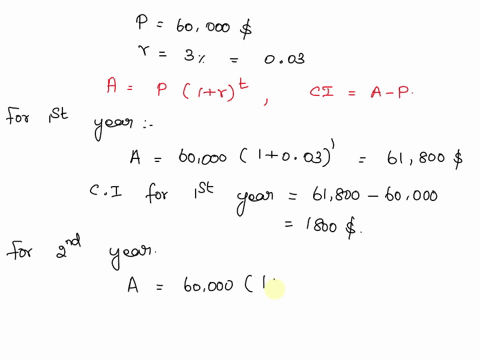 P = 60,000 $
r = 3% = 0.03
A = P (1+r)^t , CI = A-P.
For 1st year :-
A = 60,000 (1+0.03)^1 = 61,800 $
C.I for 1st year = 61,800 - 60,000
= 1800 $.
For 2nd year.
A = 60,000 (1